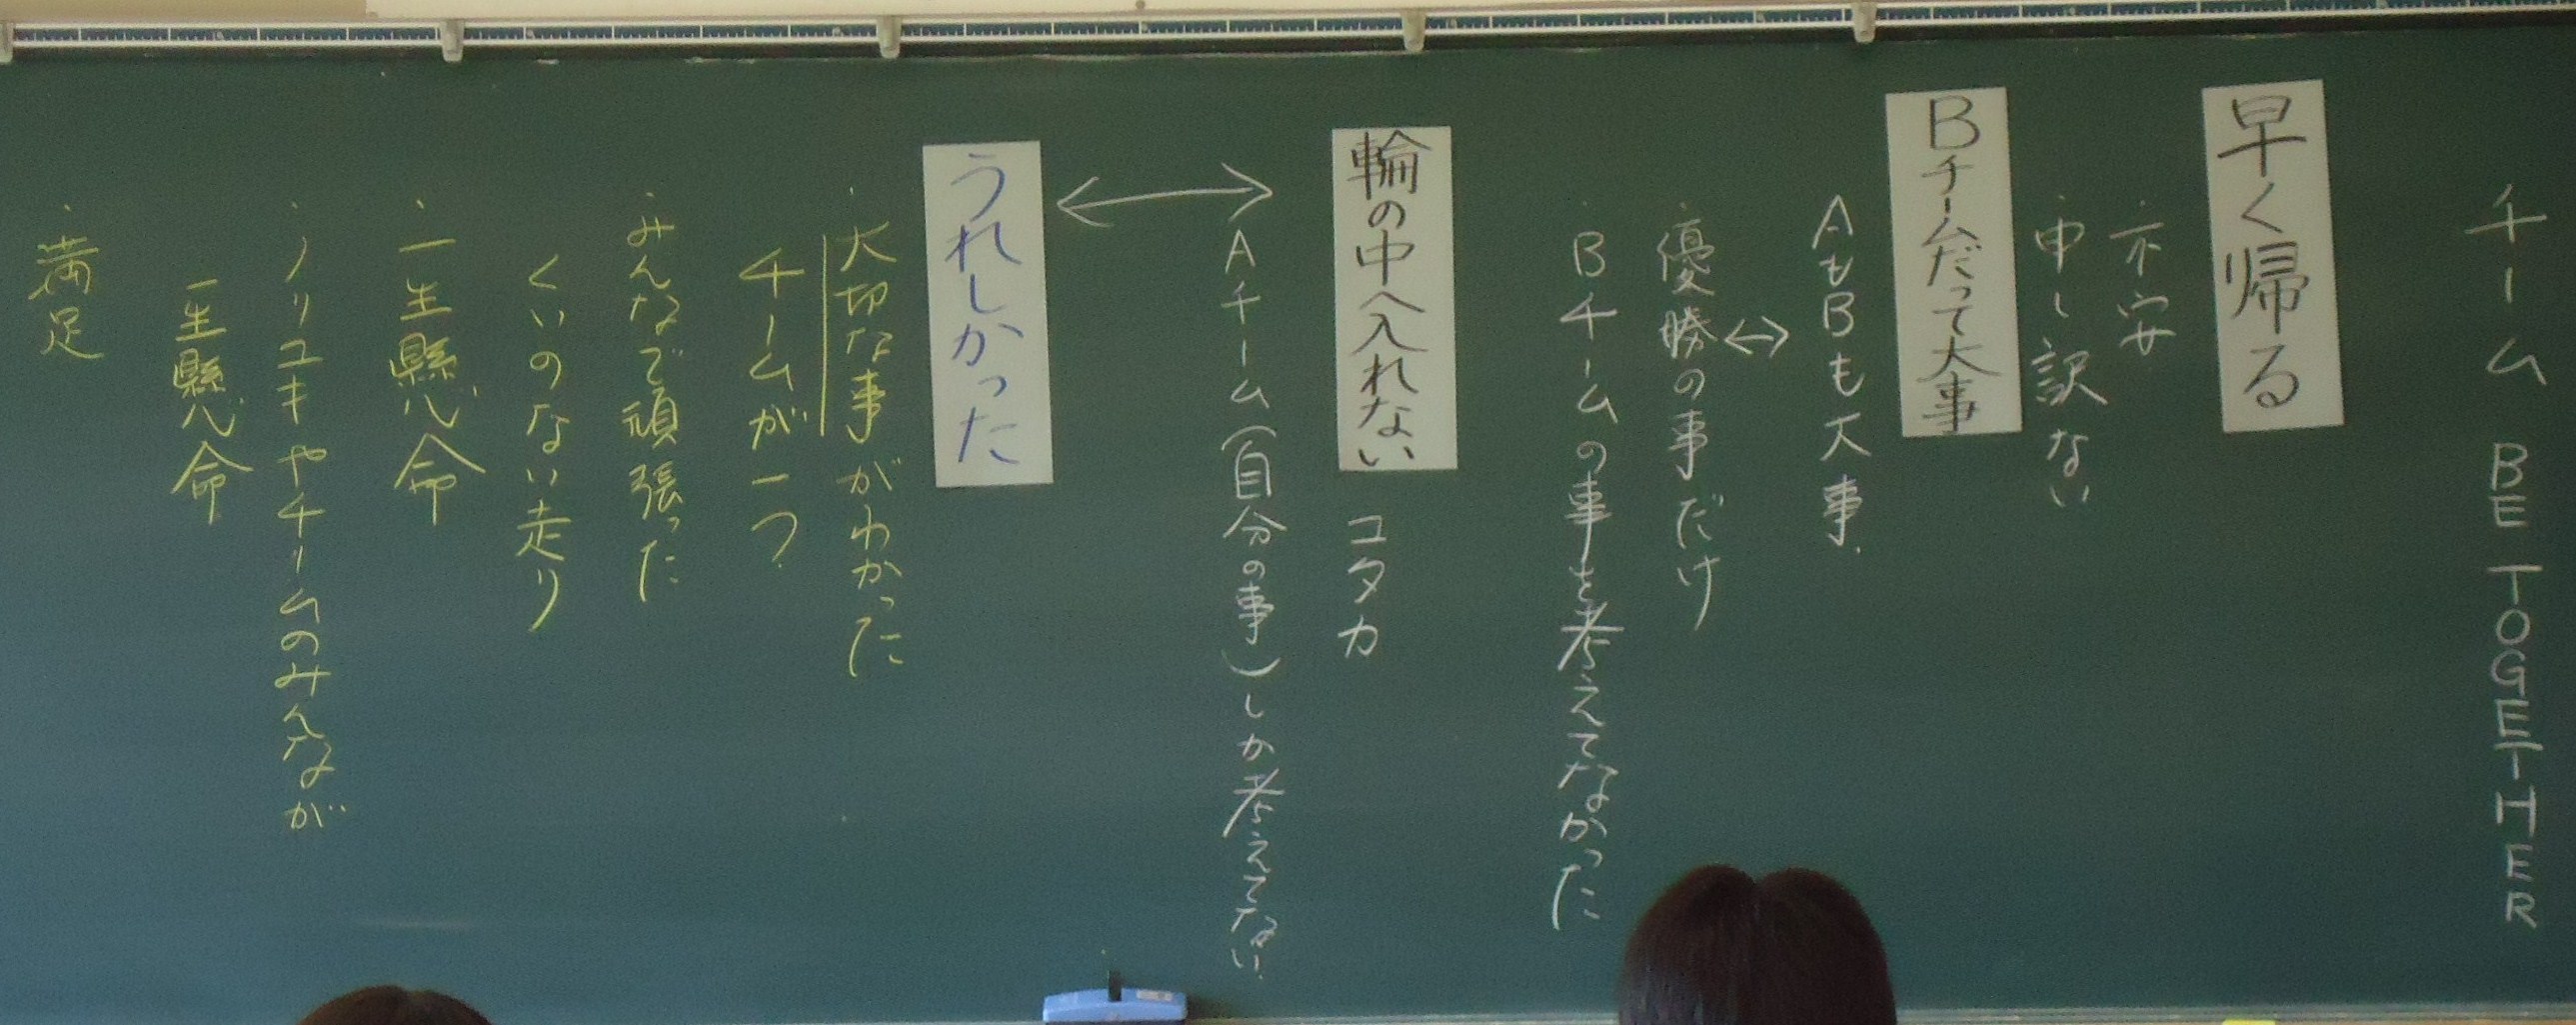 チーム BE TOGETHER
早く帰る
・不安
・申し訳ない
Bチームだって大事
AもBも大事.
優勝の事だけ
・Bチームの事を考えてなかった
輪の中へ入れない ユタカ
Aチーム(自分の事)しか考えてない.
うれしかった
・大切な事がわかった
チームが一つ
・みんなで頑張った
くいのない走り
・一生懸命
・ノリユキやチームのみんなが
一生懸命
・満足